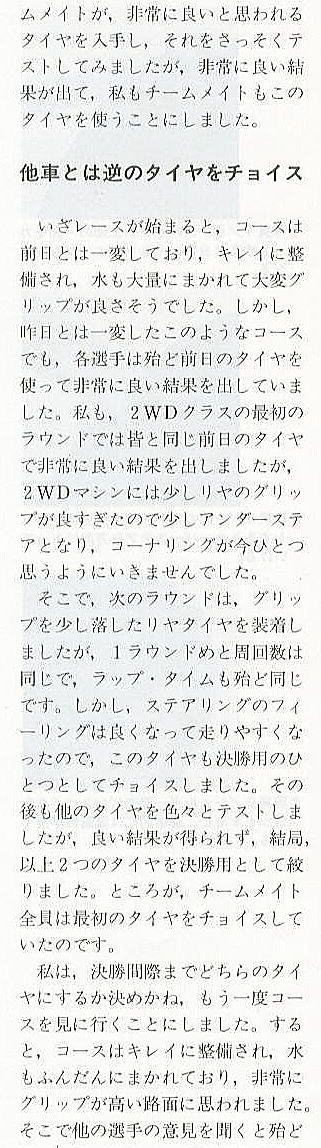 ムメイトが，非常に良いと思われる
タイヤを入手し，それをさっそくテ
ストしてみましたが，非常に良い結
果が出て，私もチームメイトもこの
タイヤを使うことにしました。
他車とは逆のタイヤをチョイス
いざレースが始まると，コースは
前日とは一変しており，キレイに整
備され，水も大量にまかれて大変グ
リップが良さそうでした。しかし，
昨日とは一変したこのようなコース
でも，各選手は殆ど前日のタイヤを
使って非常に良い結果を出していま
した。私も，２ＷＤクラスの最初の
ラウンドでは皆と同じ前日のタイヤ
で非常に良い結果を出しましたが，
２ＷＤマシンには少しリヤのグリッ
プが良すぎたので少しアンダーステ
アとなり，コーナリングが今ひとつ
思うようにいきませんでした。
そこで，次のラウンドは，グリッ
プを少し落したリヤタイヤを装着し
ましたが，１ラウンドめと周回数は
同じで，ラップ・タイムも殆ど同じ
です。しかし，ステアリングのフィ
ーリングは良くなって走りやすくな
ったので，このタイヤも決勝用のひ
とつとしてチョイスしました。その
後も他のタイヤを色々とテストしま
したが，良い結果が得られず，結局，
以上２つのタイヤを決勝用として絞
りました。ところが，チームメイト
全員は最初のタイヤをチョイスして
いたのです。
私は，決勝間際までどちらのタイ
ヤにするか決めかね，もう一度コー
スを見に行くことにしました。する
と，コースはキレイに整備され，水
もふんだんにまかれており，非常に
グリップが高い路面に思われました。
そこで他の選手の意見を聞くと殆ど